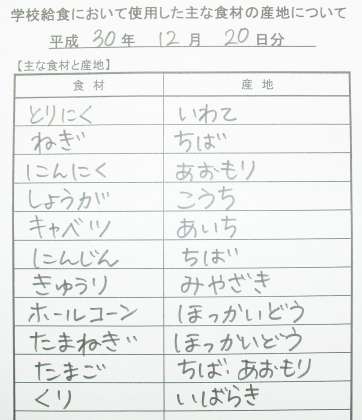 学校給食において使用した主な食材の産地について
平成 30 年 12 月 20 日分
【主な食材と産地】
食 材 産 地
とりにく いわて
ねぎ ちば
にんにく あおもり
しょうが こうち
キャベツ あいち
にんじん ちば
きゅうり みやざき
ホールコーン ほっかいどう
たまねぎ ほっかいどう
たまご ちば・あおもり
くり いばらき